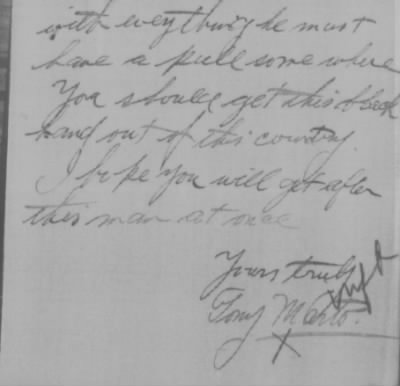 with eveything he must
have a pull some where
You should get this black
hand out of this country.
I hope you will get after
this man at once
Yours truly
Tony
X